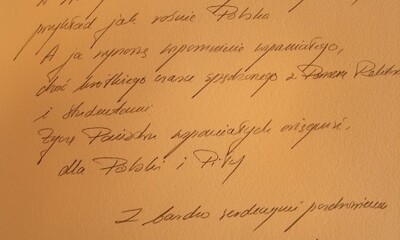 przykład jak rośnie Polska
A ja wynoszę wspomnienie wspaniałego,
choć krótkiego czasu spędzonego z Panem
i studentami
Życzę Państwu wspaniałych osiągnięć,
dla Polski i Piły
Z bardzo serdecznymi pozdrowieniami